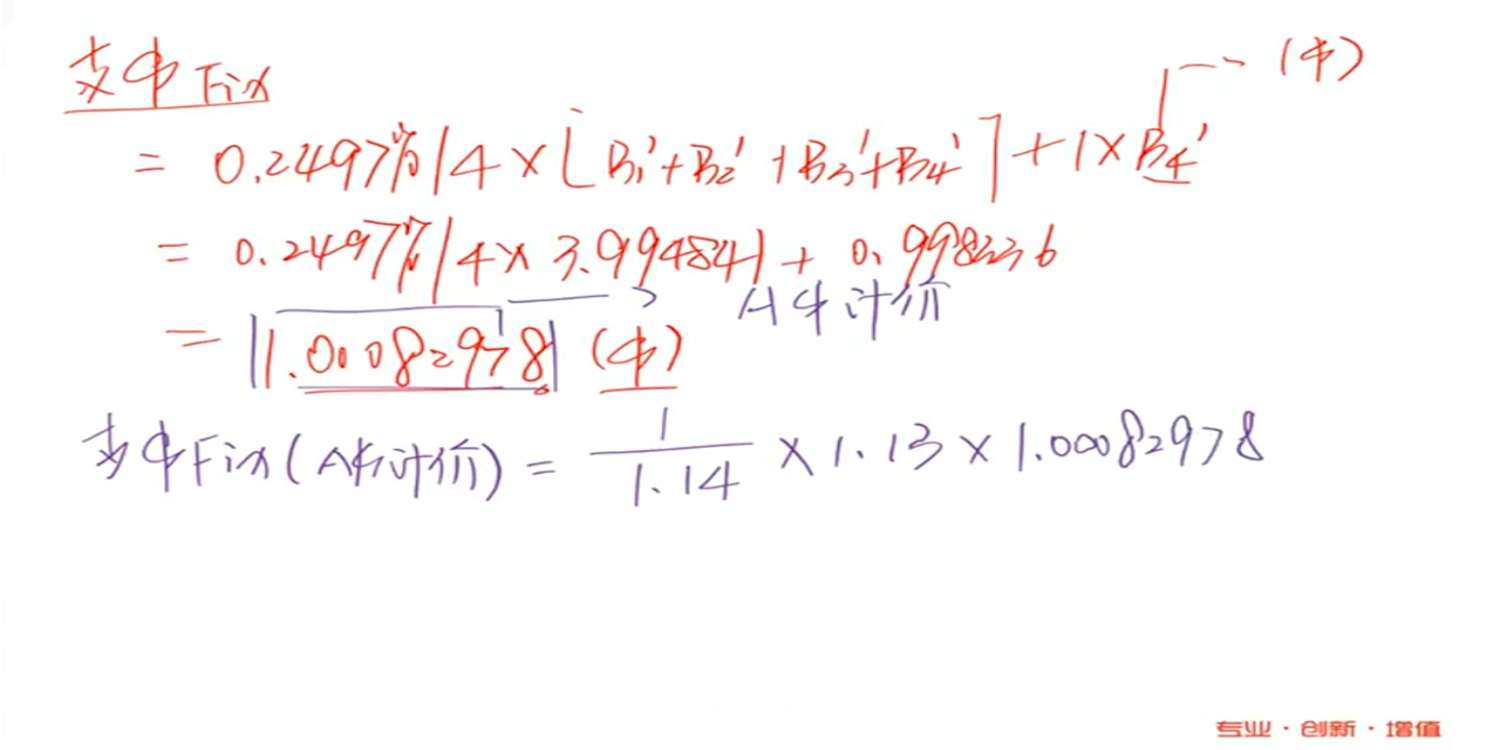 支¢Fix
(¢)
= 0.2497%/4 × [B₁'+B₂'+B₃'+B₄'] + 1×B₄'
= 0.2497%/4 × 3.994841 + 0.998236
A$计价
= 1.00082978 (¢)
支¢Fix(A$计价) = 1/1.14 × 1.13 × 1.00082978
专业·创新·增值